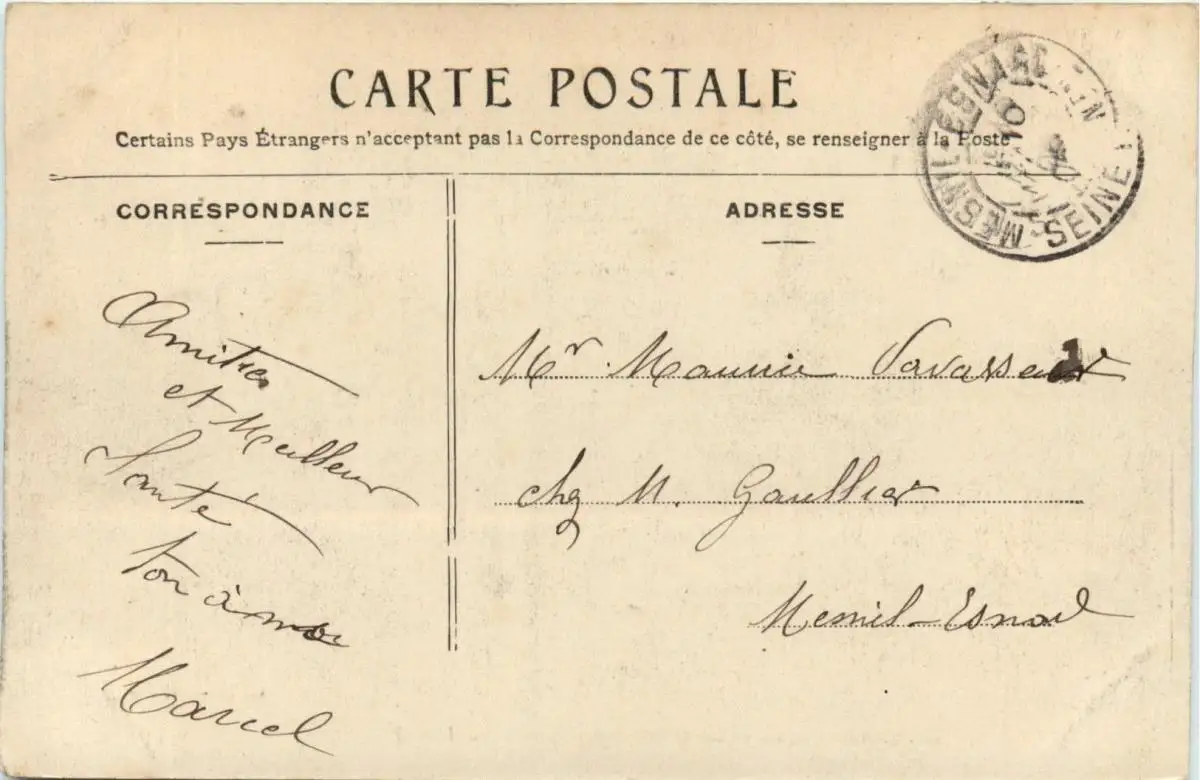 CARTE POSTALE
Certains Pays Étrangers n'acceptant pas la Correspondance de ce côté, se renseigner à la Poste
CORRESPONDANCE
Amitiés
et Meilleur
Santé
ton
Marcel
ADRESSE
Mr Maurice Vavasseur
chez M. Gaullier
Mesnil-Esnard
MESNIL ESNARD
SEINE